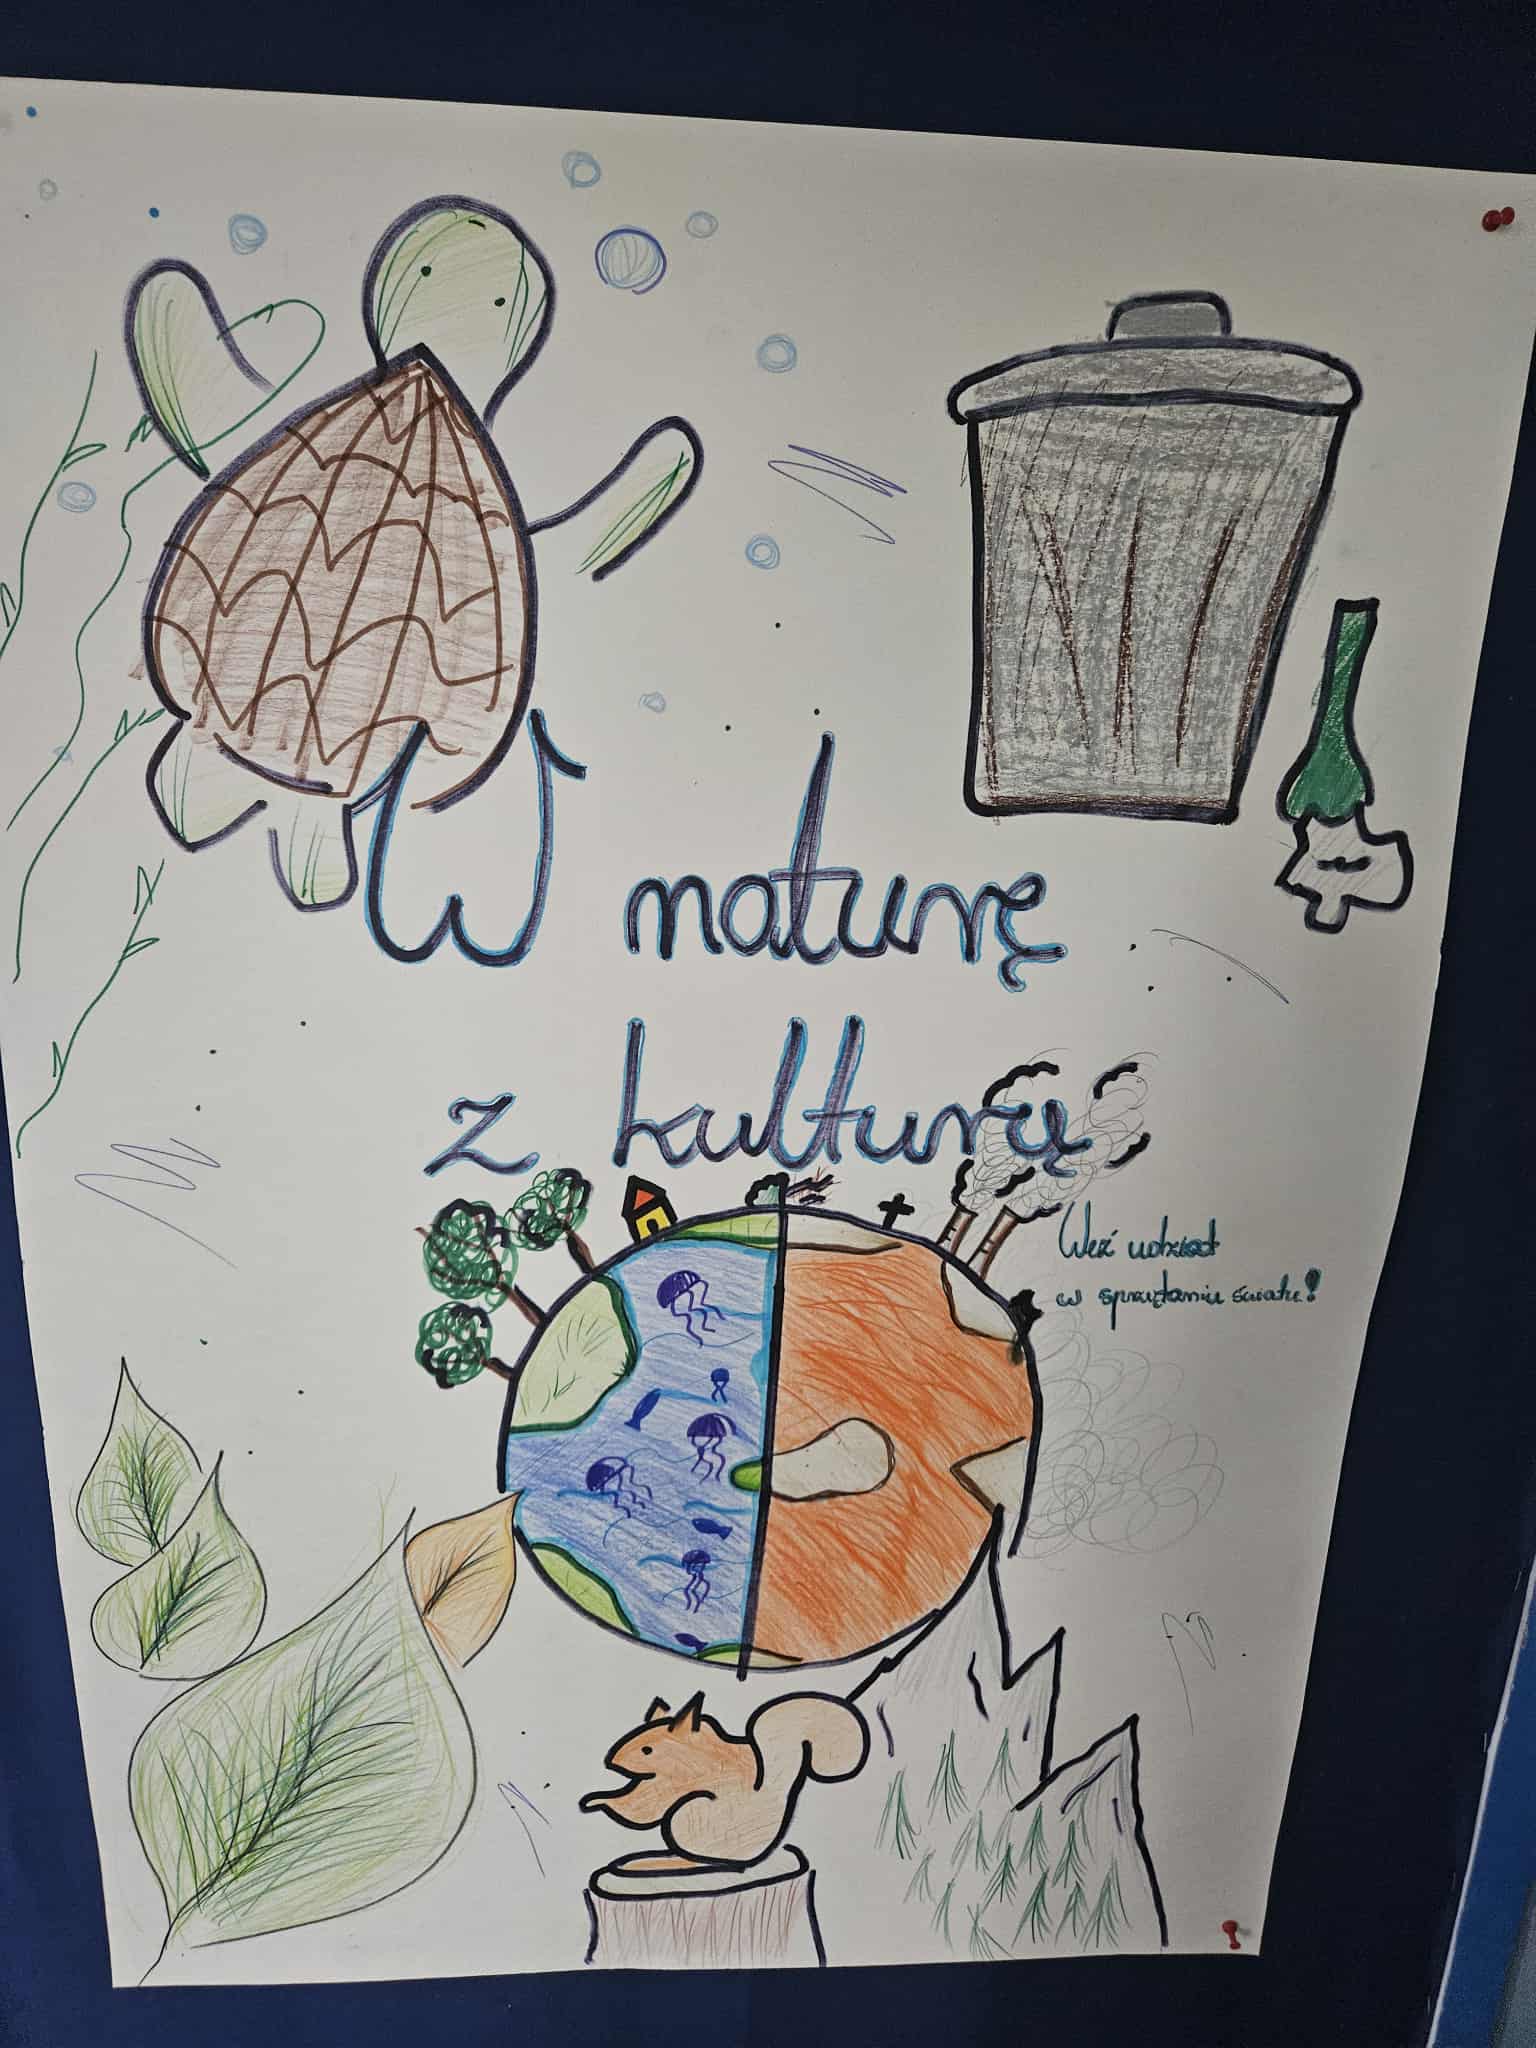 W naturę
z kulturą
Weź udział
w sprzątaniu świata!